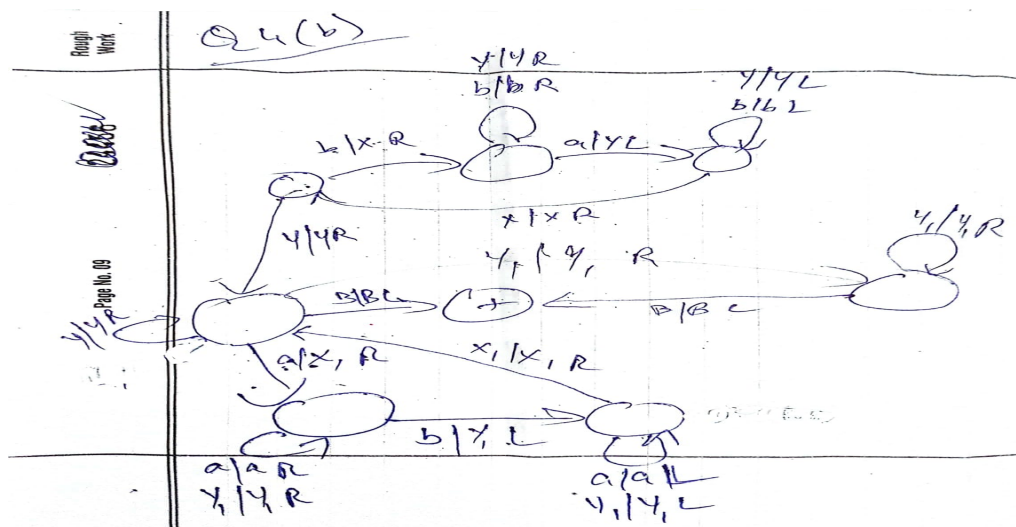 Rough
Work
Q4(b)
y/y R
b/b R
y/y L
b/b L
b/x R
a/y L
x/x R
y/y R
y₁/y₁ R
y₁/y₁ R
Page No. 09
B/B L
+
B/B L
y/y R
a/x₁ R
x₁/x₁ R
b/y₁ L
a/a R
y₁/y₁ R
a/a L
y₁/y₁ L